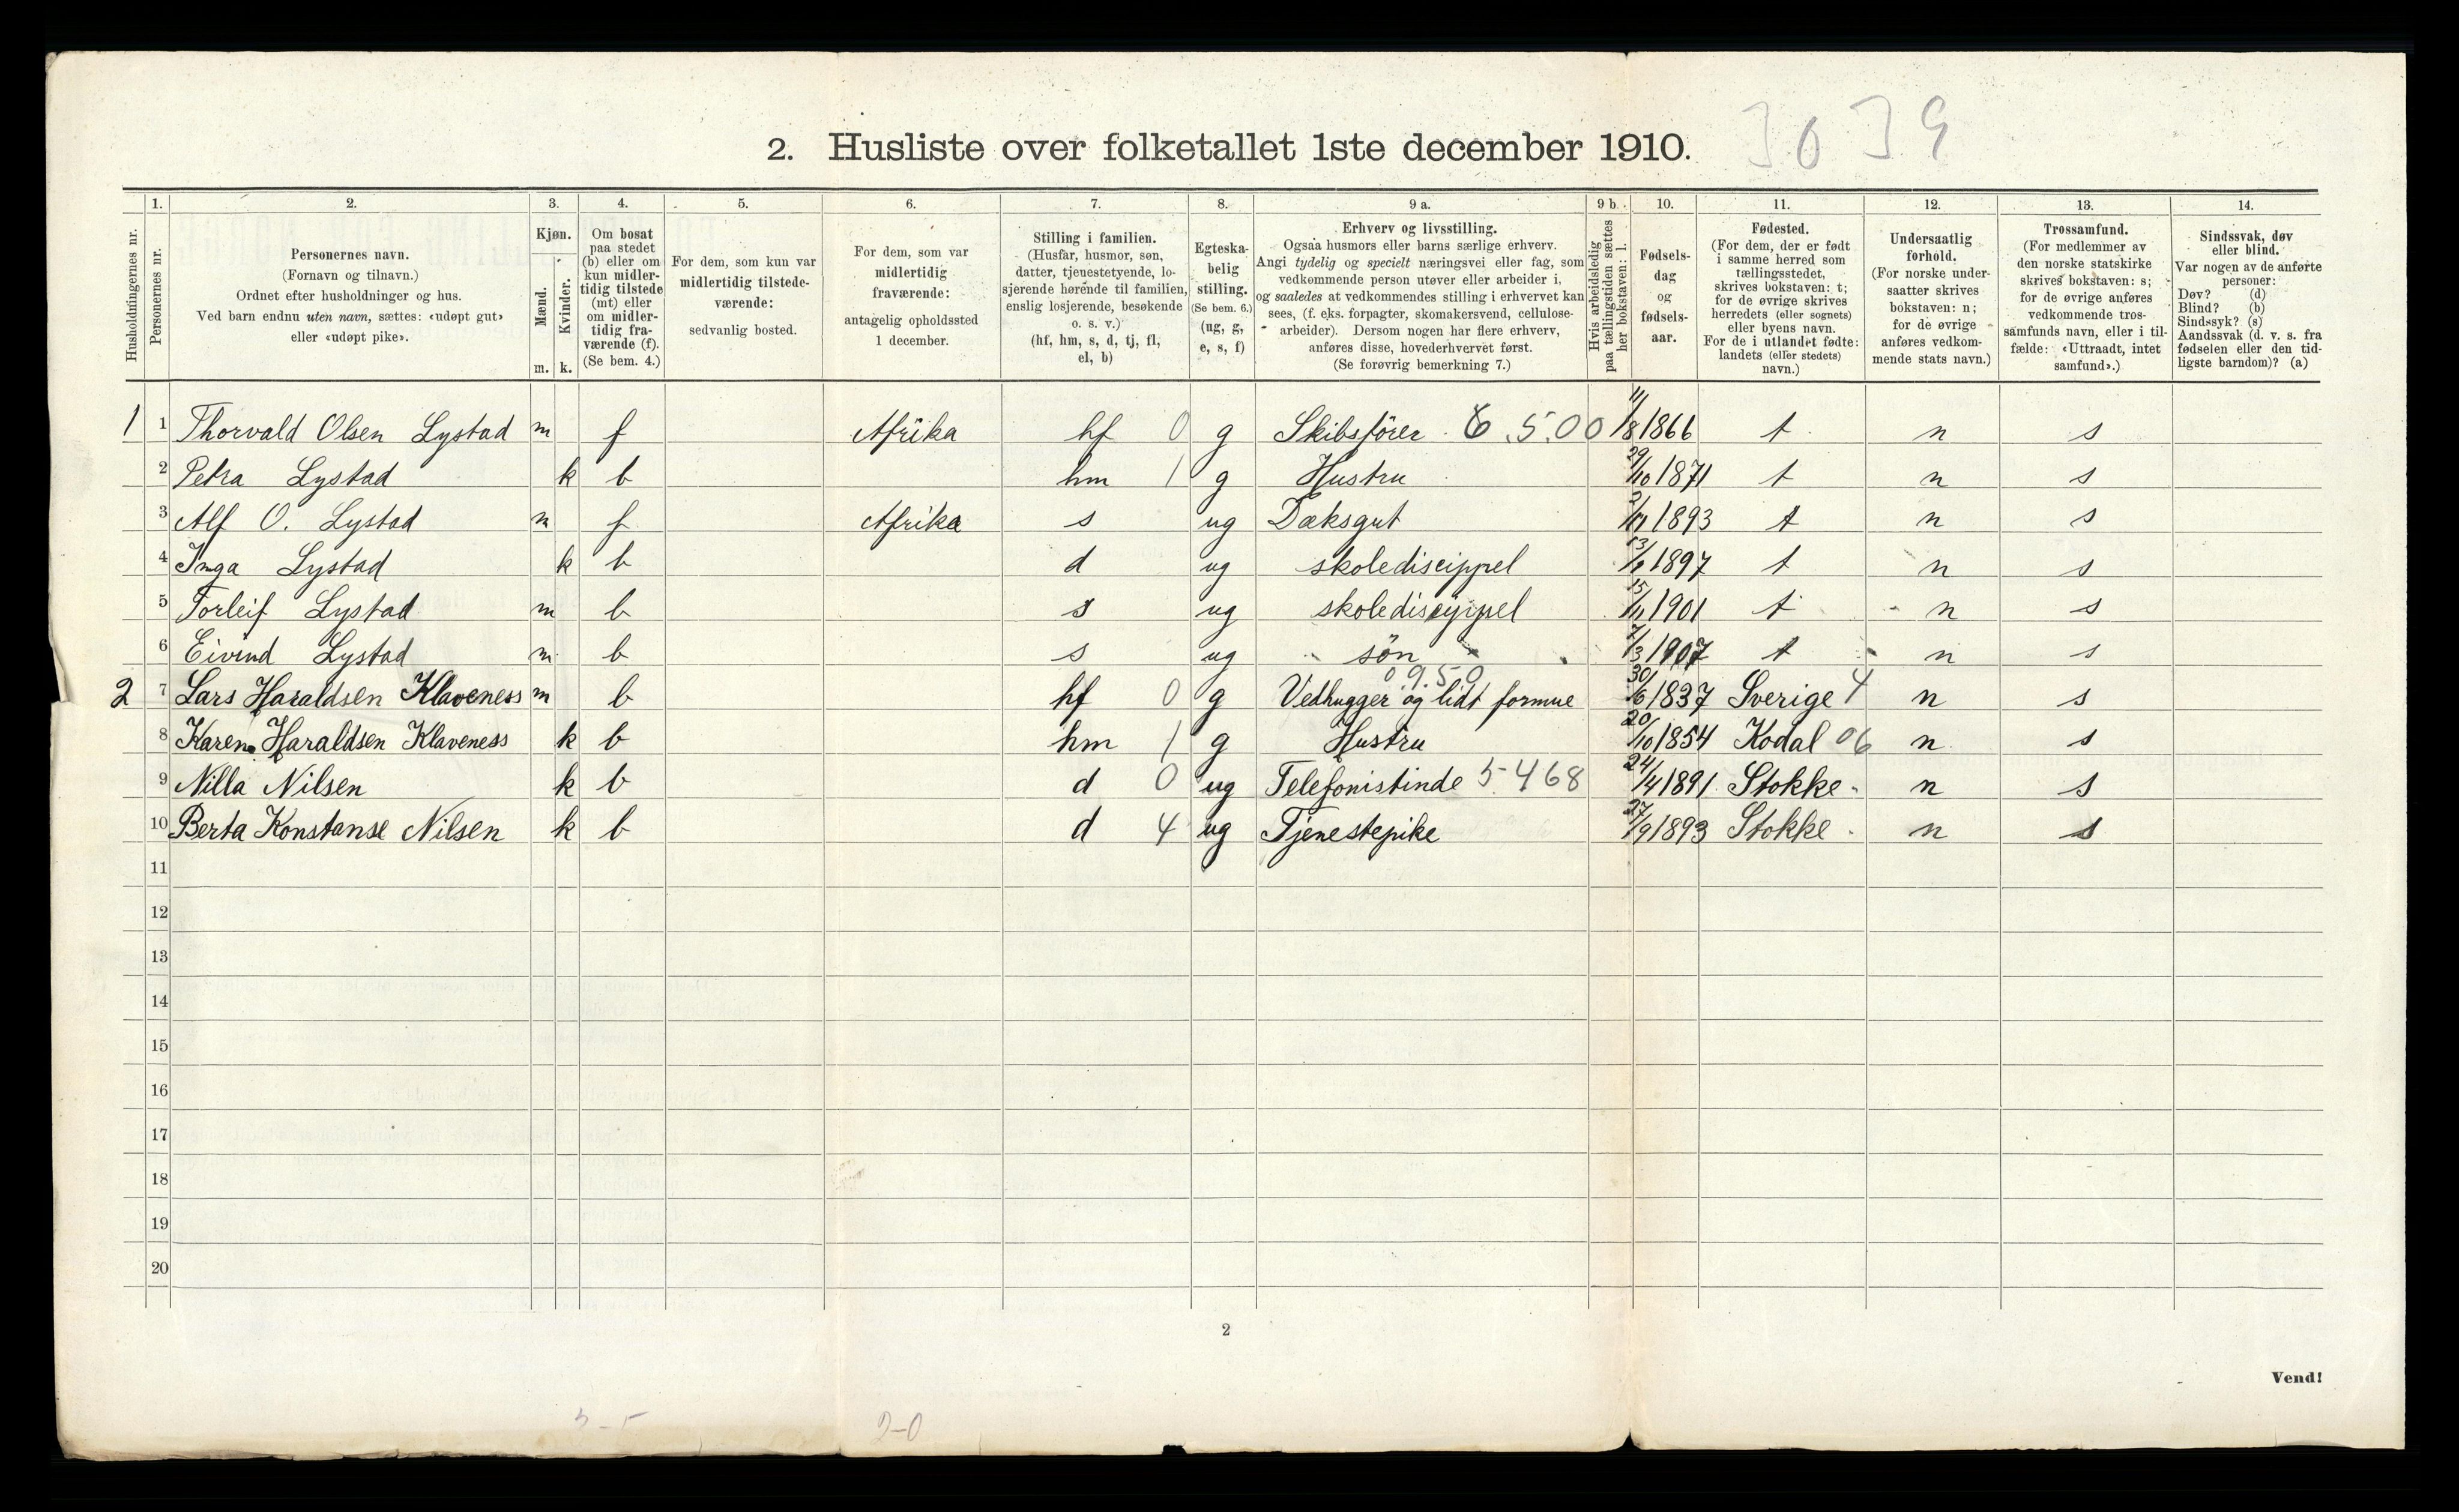 2. Husliste over folketallet 1ste december 1910. 3039
Husholdningernes nr.
1. Personernes nr.
2. Personernes navn.
(Fornavn og tilnavn.)
Ordnet efter husholdninger og hus.
Ved barn endnu uten navn, sættes: «udøpt gut»
eller «udøpt pike».
3. Kjøn.
Mænd. m.
Kvinder. k.
4. Om bosat
paa stedet
(b) eller om
kun midler-
tidig tilstede
(mt) eller
om midler-
tidig fra-
værende (f).
(Se bem. 4.)
5. For dem, som kun var
midlertidig tilstede-
værende:
sedvanlig bosted.
6. For dem, som var
midlertidig
fraværende:
antagelig opholdssted
1 december.
7. Stilling i familien.
(Husfar, husmor, søn,
datter, tjenestetyende, lo-
sjerende hørende til familien,
enslig losjerende, besøkende
o. s. v.)
(hf, hm, s, d, tj, fl,
el, b)
8. Egteska-
belig
stilling.
(Se bem. 6.)
(ug, g,
e, s, f)
9 a. Erhverv og livsstilling.
Ogsaa husmors eller barns særlige erhverv.
Angi tydelig og specielt næringsvei eller fag, som
vedkommende person utøver eller arbeider i,
og saaledes at vedkommendes stilling i erhvervet kan
sees, (f. eks. forpagter, skomakersvend, cellulose-
arbeider). Dersom nogen har flere erhverv,
anføres disse, hovederhvervet først.
(Se forøvrig bemerkning 7.)
9 b. Hvis arbeidsledig
paa tællingstiden sættes
her bokstaven: l.
10. Fødsels-
dag
og
fødsels-
aar.
11. Fødested.
(For dem, der er født
i samme herred som
tællingsstedet,
skrives bokstaven: t;
for de øvrige skrives
herredets (eller sognets)
eller byens navn.
For de i utlandet fødte:
landets (eller stedets)
navn.)
12. Undersaatlig
forhold.
(For norske under-
saatter skrives
bokstaven: n;
for de øvrige
anføres vedkom-
mende stats navn.)
13. Trossamfund.
(For medlemmer av
den norske statskirke
skrives bokstaven: s;
for de øvrige anføres
vedkommende tros-
samfunds navn, eller i til-
fælde: «Uttraadt, intet
samfund».)
14. Sindssvak, døv
eller blind.
Var nogen av de anførte
personer:
Døv? (d)
Blind? (b)
Sindssyk? (s)
Aandssvak (d. v. s. fra
fødselen eller den tid-
ligste barndom)? (a)
1 1 Thorvald Olsen Lystad m f Afrika hf 0 g Skibsförer 6.500 11/8 1866 t n s
2 Petra Lystad k b hm 1 g Hustru 29/10 1871 t n s
3 Alf O. Lystad m f Afrika s ug Dæksgut 2/11 1893 t n s
4 Inga Lystad k b d ug skolediscippel 1897 t n s
5 Torleif Lystad m b s ug skolediscippel 15/11 1901 t n s
6 Eivind Lystad m b s ug sön 7/3 1907 t n s
2 7 Lars Haraldsen Klaveness m b hf 0 g Vedhugger og lidt formue 0.950 30/6 1837 Sverige 4 n s
8 Karen Haraldsen Klaveness k b hm 1 g Hustru 20/10 1854 Kodal 06 n s
9 Nilla Nilsen k b d 0 ug Telefonistinde 5468 24/4 1891 Stokke n s
10 Berta Konstanse Nilsen k b d 4 ug Tjenestepike 27/9 1893 Stokke n s
11
12
13
14
15
16
17
18
19
20
2
Vend!
3-5 2-0